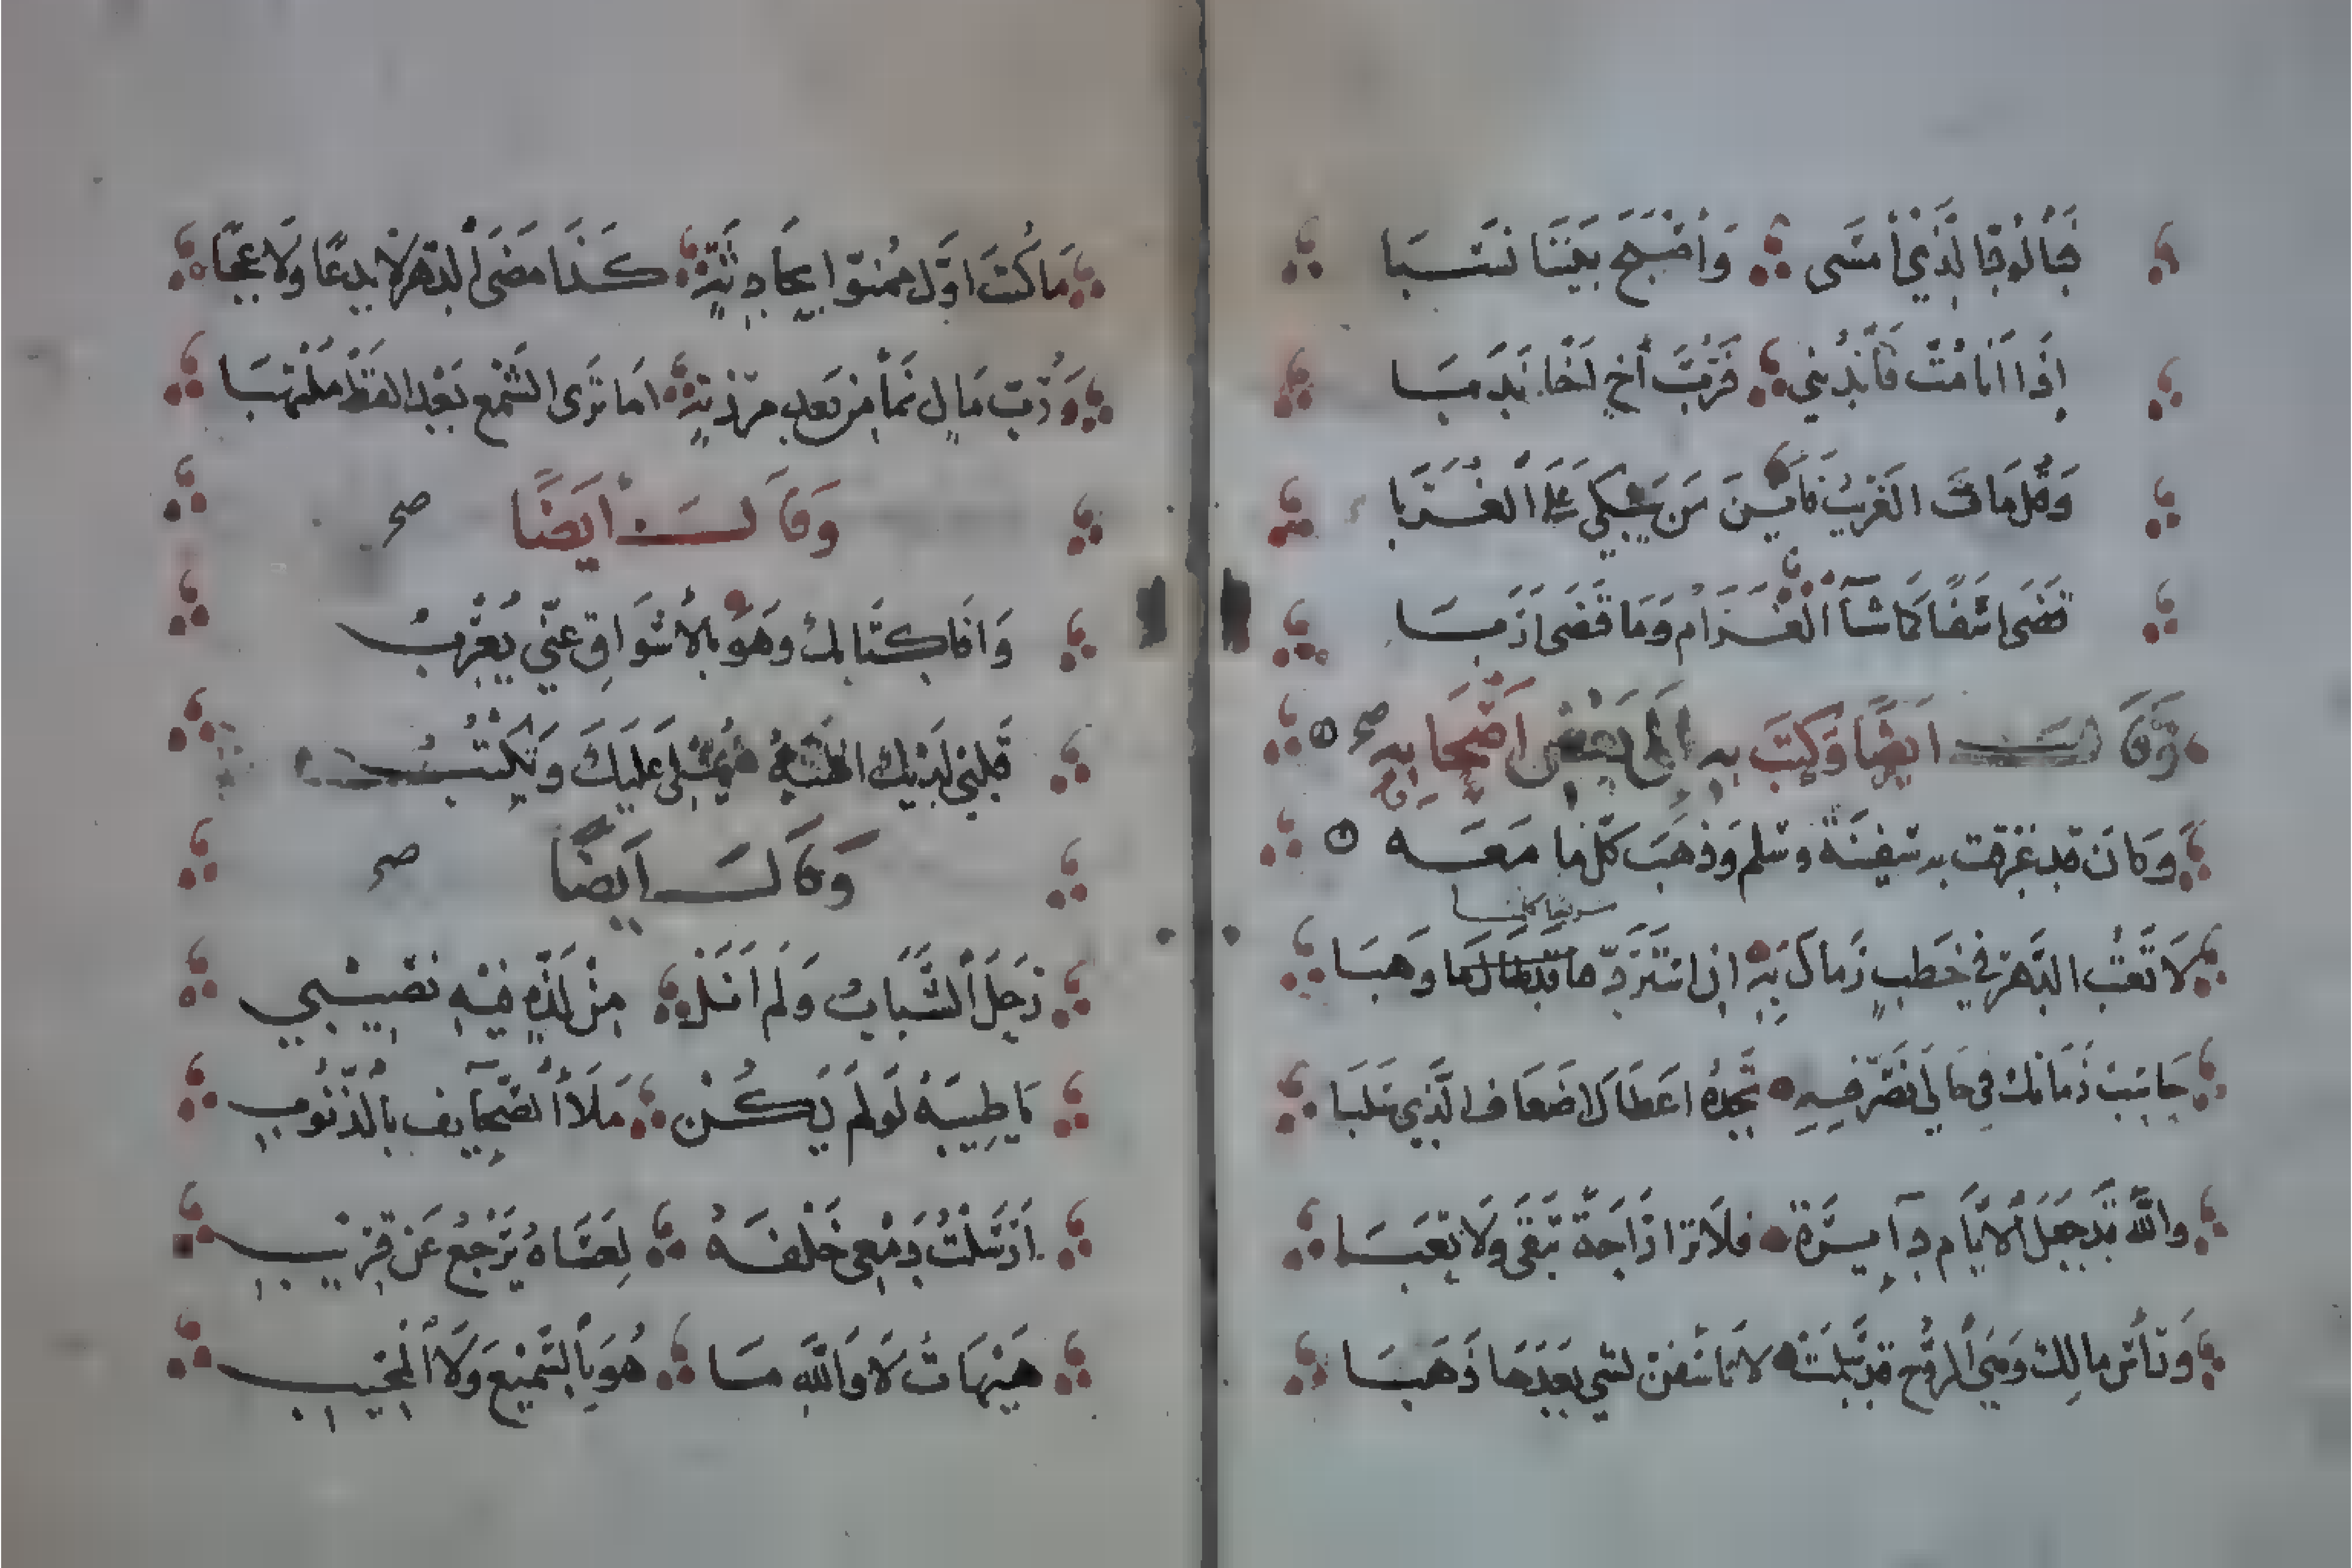 فيا لوفا الذي أمسى وأصبح بيننا نسبا
إذا أنا مت فاندبني فرب أخ أخا ندبا
وقل مات الغريب فأين من يبكي على الغربا
قضى أسفا كما شآ الغرام وما قضى أربا
وقال أيضا وكتب به إلى بعض أصحابه صح
وكان قد غرقت به سفينة وسلم وذهب كل ما معه
لا تعتب الدهر في خطب رماك به إن استرد فقدما طال ما وهبا
حاسب زمانك في حالي تصرفه تجده أعطاك اضعاف الذي سلبا
والله قد جعل الايام دآيرة فلا ترا راحة تبقى ولا تعبا
ورأس مالك وهي الروح قد سلمت لا تأسفن لشي بعدها ذهبا
ما كنت اول ممنوا بحادثة كذا مضى الدهر لا بدعا ولا عجبا
ورب مال نما من بعد مرزئة اما ترى الشمع بعد القط ملتهبا
وقال أيضا صح
وافا كتابك وهو بالأشواق عني يعرب
قلبي لديك اظنه يملى عليك وتكتب
وقال أيضا صح
رحل الشباب ولم أنل من لذة فيه نصيبي
يا طيبه لو لم يكن ملأ الصحآيف بالذنوب
أرسلت دمعي خلفه لعساه يرجع عن قريب
هيهات لا والله ما هو بالسميع ولا المجيب